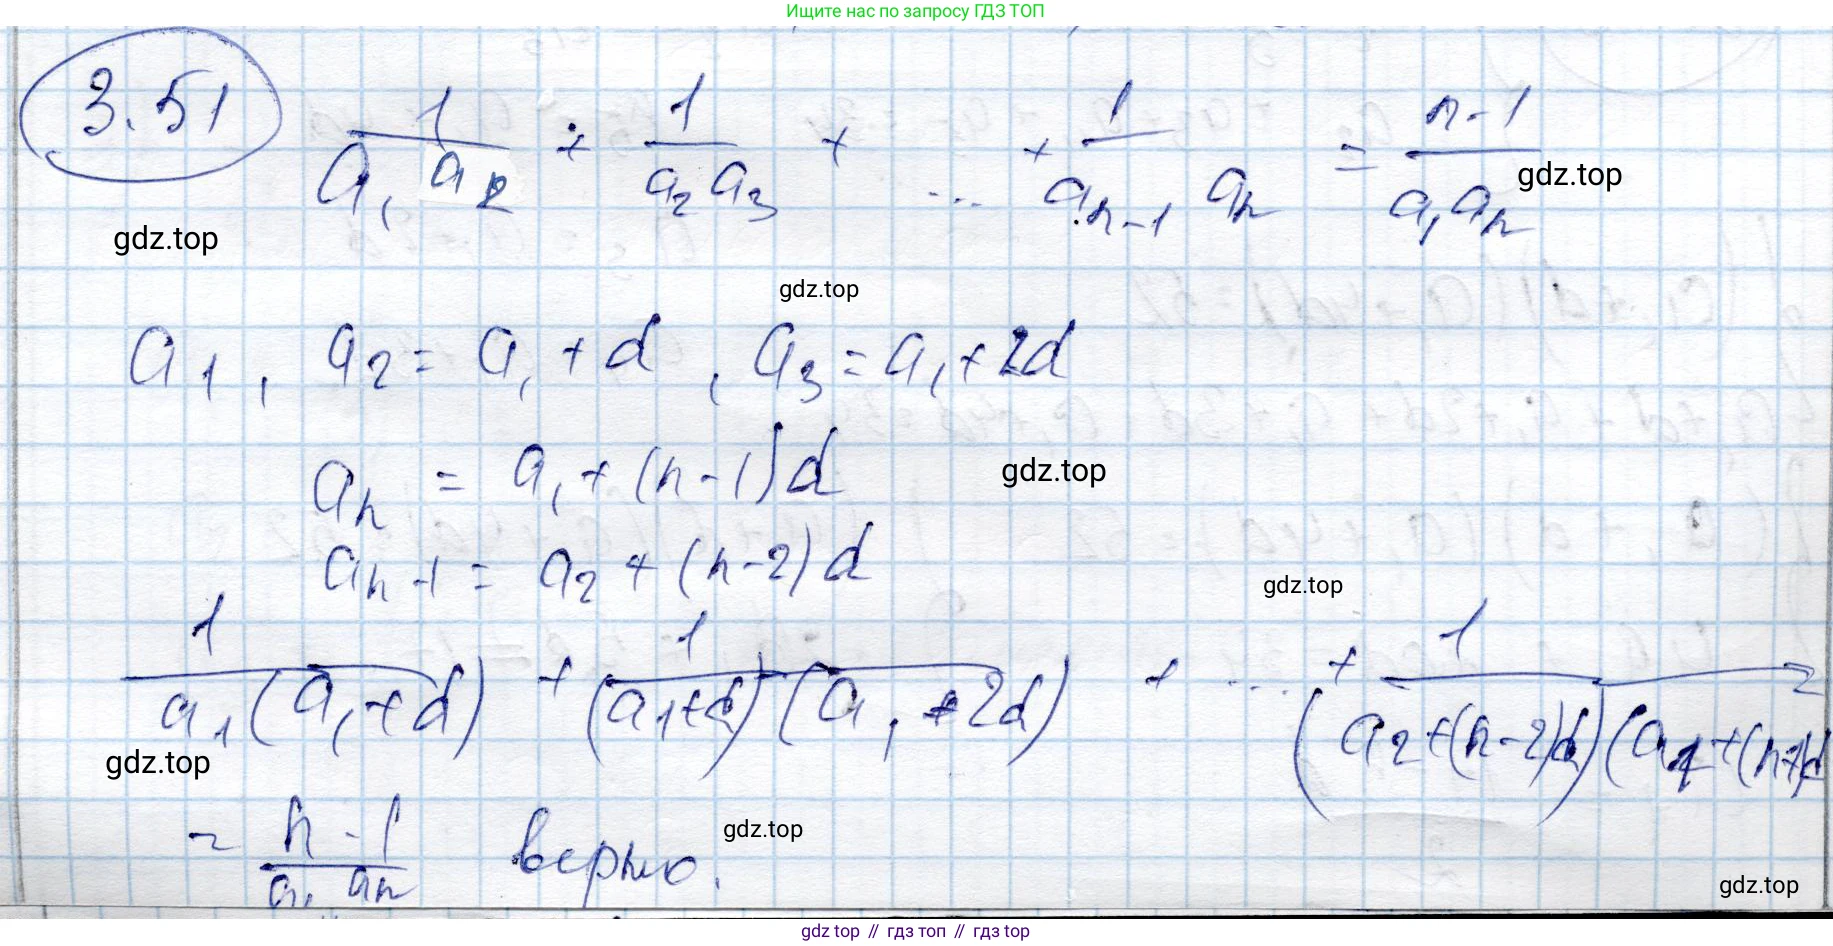 Ищите нас по запросу ГДЗ ТОП
3.51
1/(a₁a₂) + 1/(a₂a₃) + ... + 1/(aₙ₋₁ aₙ) = (n-1)/(a₁aₙ)
gdz.top
gdz.top
gdz.top
a₁, a₂ = a₁ + d, a₃ = a₁ + 2d
aₙ = a₁ + (n-1)d
gdz.top
aₙ₋₁ = a₂ + (n-2)d
gdz.top
1/(a₁(a₁+d)) + 1/((a₁+d)(a₁+2d)) + ... + 1/((a₂+(n-2)d)(a₁+(n-1)d)) =
gdz.top
= (n-1)/(a₁ aₙ) верно.
gdz.top
gdz.top
gdz.top // гдз топ // гдз.top